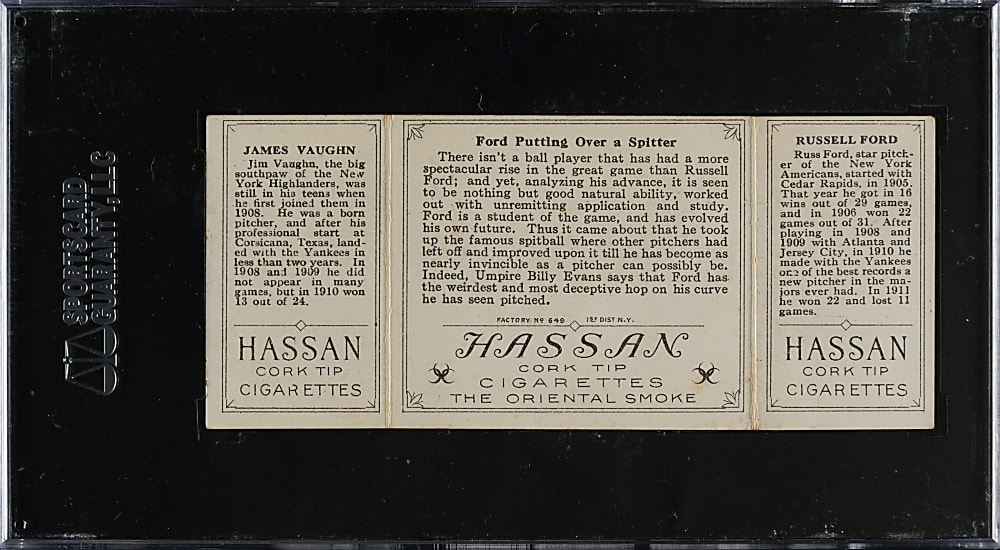 SPORTSCARD
GUARANTY, LLC
JAMES VAUGHN
Jim Vaughn, the big
southpaw of the New
York Highlanders, was
still in his teens when
he first joined them in
1908. He was a born
pitcher, and after his
professional start at
Corsicana, Texas, land-
ed with the Yankees in
less than two years. In
1908 and 1909 he did
not appear in many
games, but in 1910 won
13 out of 24.
HASSAN
CORK TIP
CIGARETTES
Ford Putting Over a Spitter
There isn't a ball player that has had a more
spectacular rise in the great game than Russell
Ford; and yet, analyzing his advance, it is seen
to be nothing but good natural ability, worked
out with unremitting application and study.
Ford is a student of the game, and has evolved
his own future. Thus it came about that he took
up the famous spitball where other pitchers had
left off and improved upon it till he has become as
nearly invincible as a pitcher can possibly be.
Indeed, Umpire Billy Evans says that Ford has
the weirdest and most deceptive hop on his curve
he has seen pitched.
FACTORY Nº 649 1ST DIST. N.Y.
HASSAN
CORK TIP
CIGARETTES
THE ORIENTAL SMOKE
RUSSELL FORD
Russ Ford, star pitch-
er of the New York
Americans, started with
Cedar Rapids, in 1905.
That year he got in 16
wins out of 29 games,
and in 1906 won 22
games out of 31. After
playing in 1908 and
1909 with Atlanta and
Jersey City, in 1910 he
made with the Yankees
one of the best records a
new pitcher in the ma-
jors ever had. In 1911
he won 22 and lost 11
games.
HASSAN
CORK TIP
CIGARETTES